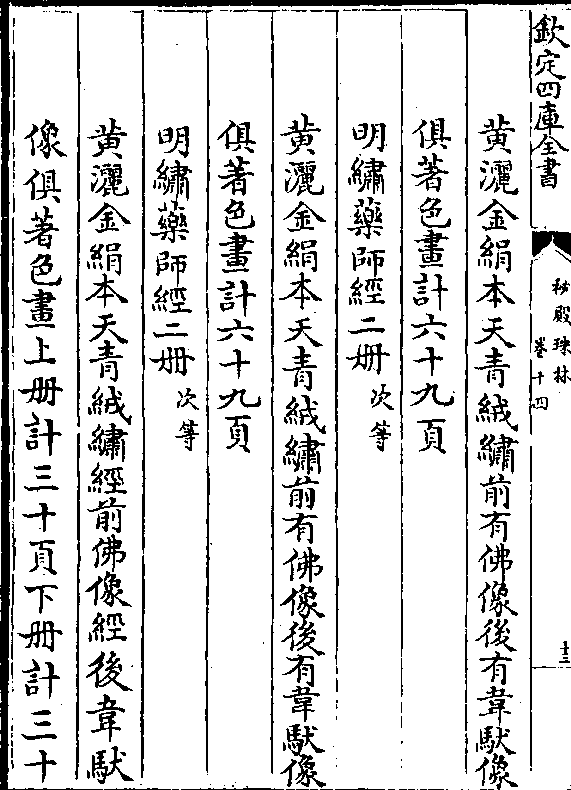 欽定四庫全書
秘殿珠林
卷十四
十三
黄灑金絹本天青絨繡前有佛像後有韋馱像
俱著色畫計六十九頁
明繡藥師經二册次等
黄灑金絹本天青絨繡前有佛像後有韋馱像
俱著色畫計六十九頁
明繡藥師經二册次等
黄灑金絹本天青絨繡經前佛像經後韋馱
像俱著色畫上册計三十頁下册計三十